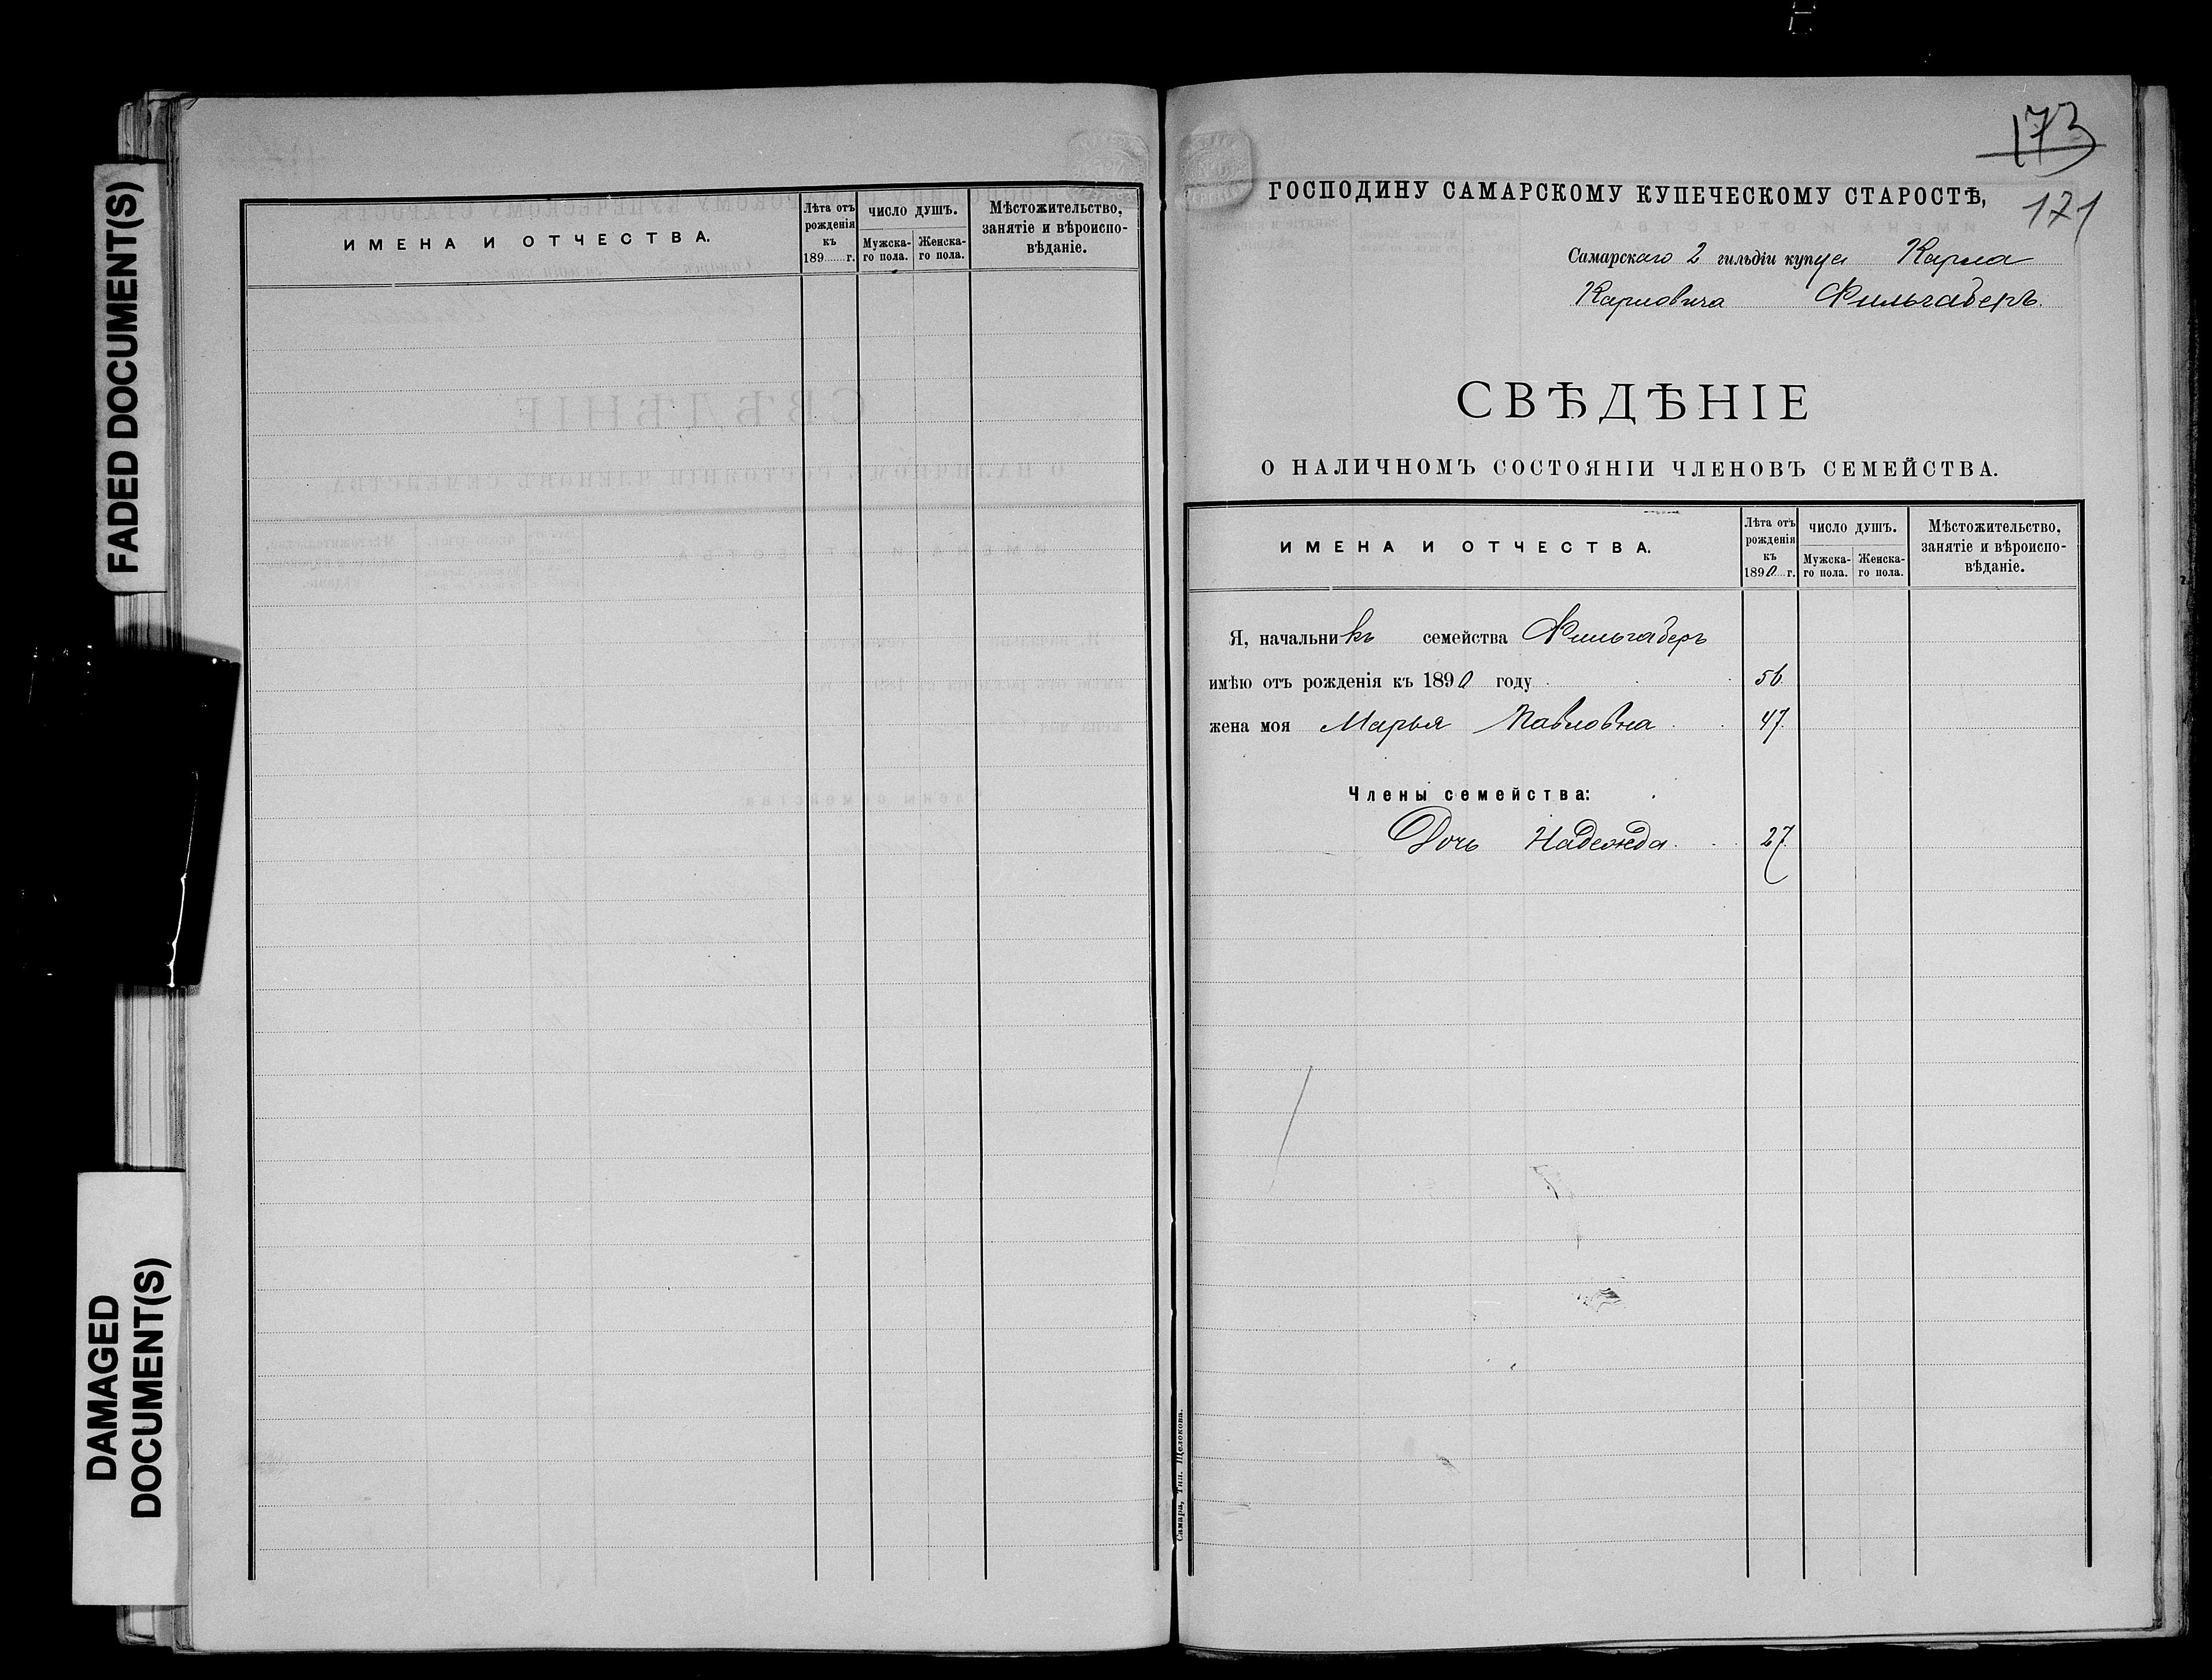 FADED DOCUMENT(S)
DAMAGED
DOCUMENT(S)
ИМЕНА И ОТЧЕСТВА.
Лѣта отъ
рожденія
къ
189......г.
ЧИСЛО ДУШЪ.
Мужска-
го пола.
Женска-
го пола.
Мѣстожительство,
занятіе и вѣроиспо-
вѣданіе.
173
171
ГОСПОДИНУ САМАРСКОМУ КУПЕЧЕСКОМУ СТАРОСТѢ,
Самарскаго 2 гильдіи купца Карла
Карловича Фильгаберъ.
СВѢДѢНІЕ
О НАЛИЧНОМЪ СОСТОЯНІИ ЧЛЕНОВЪ СЕМЕЙСТВА.
ИМЕНА И ОТЧЕСТВА.
Лѣта отъ
рожденія
къ
1890 г.
ЧИСЛО ДУШЪ.
Мужска-
го пола.
Женска-
го пола.
Мѣстожительство,
занятіе и вѣроиспо-
вѣданіе.
Я, начальникъ семейства Фильгаберъ
имѣю отъ рожденія къ 1890 году 56
жена моя Марья Павловна 47.
Члены семейства:
Дочь Надежда 27.
Самара, Тип. Щелокова.